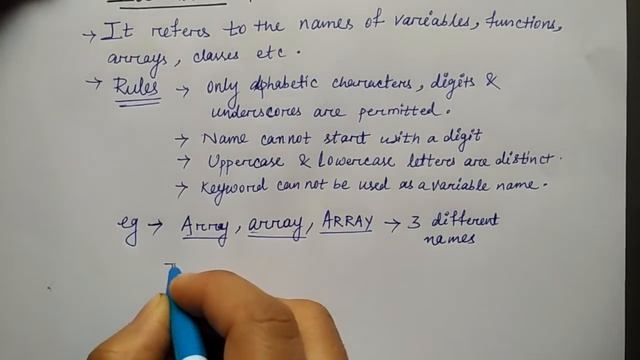 → It refers to the names of variables, functions,
arrays, classes etc.
→ Rules → Only alphabetic characters, digits &
underscores are permitted.
→ Name cannot start with a digit
→ Uppercase & lowercase letters are distinct.
→ Keyword can not be used as a variable name.
eg → Array, array, ARRAY → 3 different
names